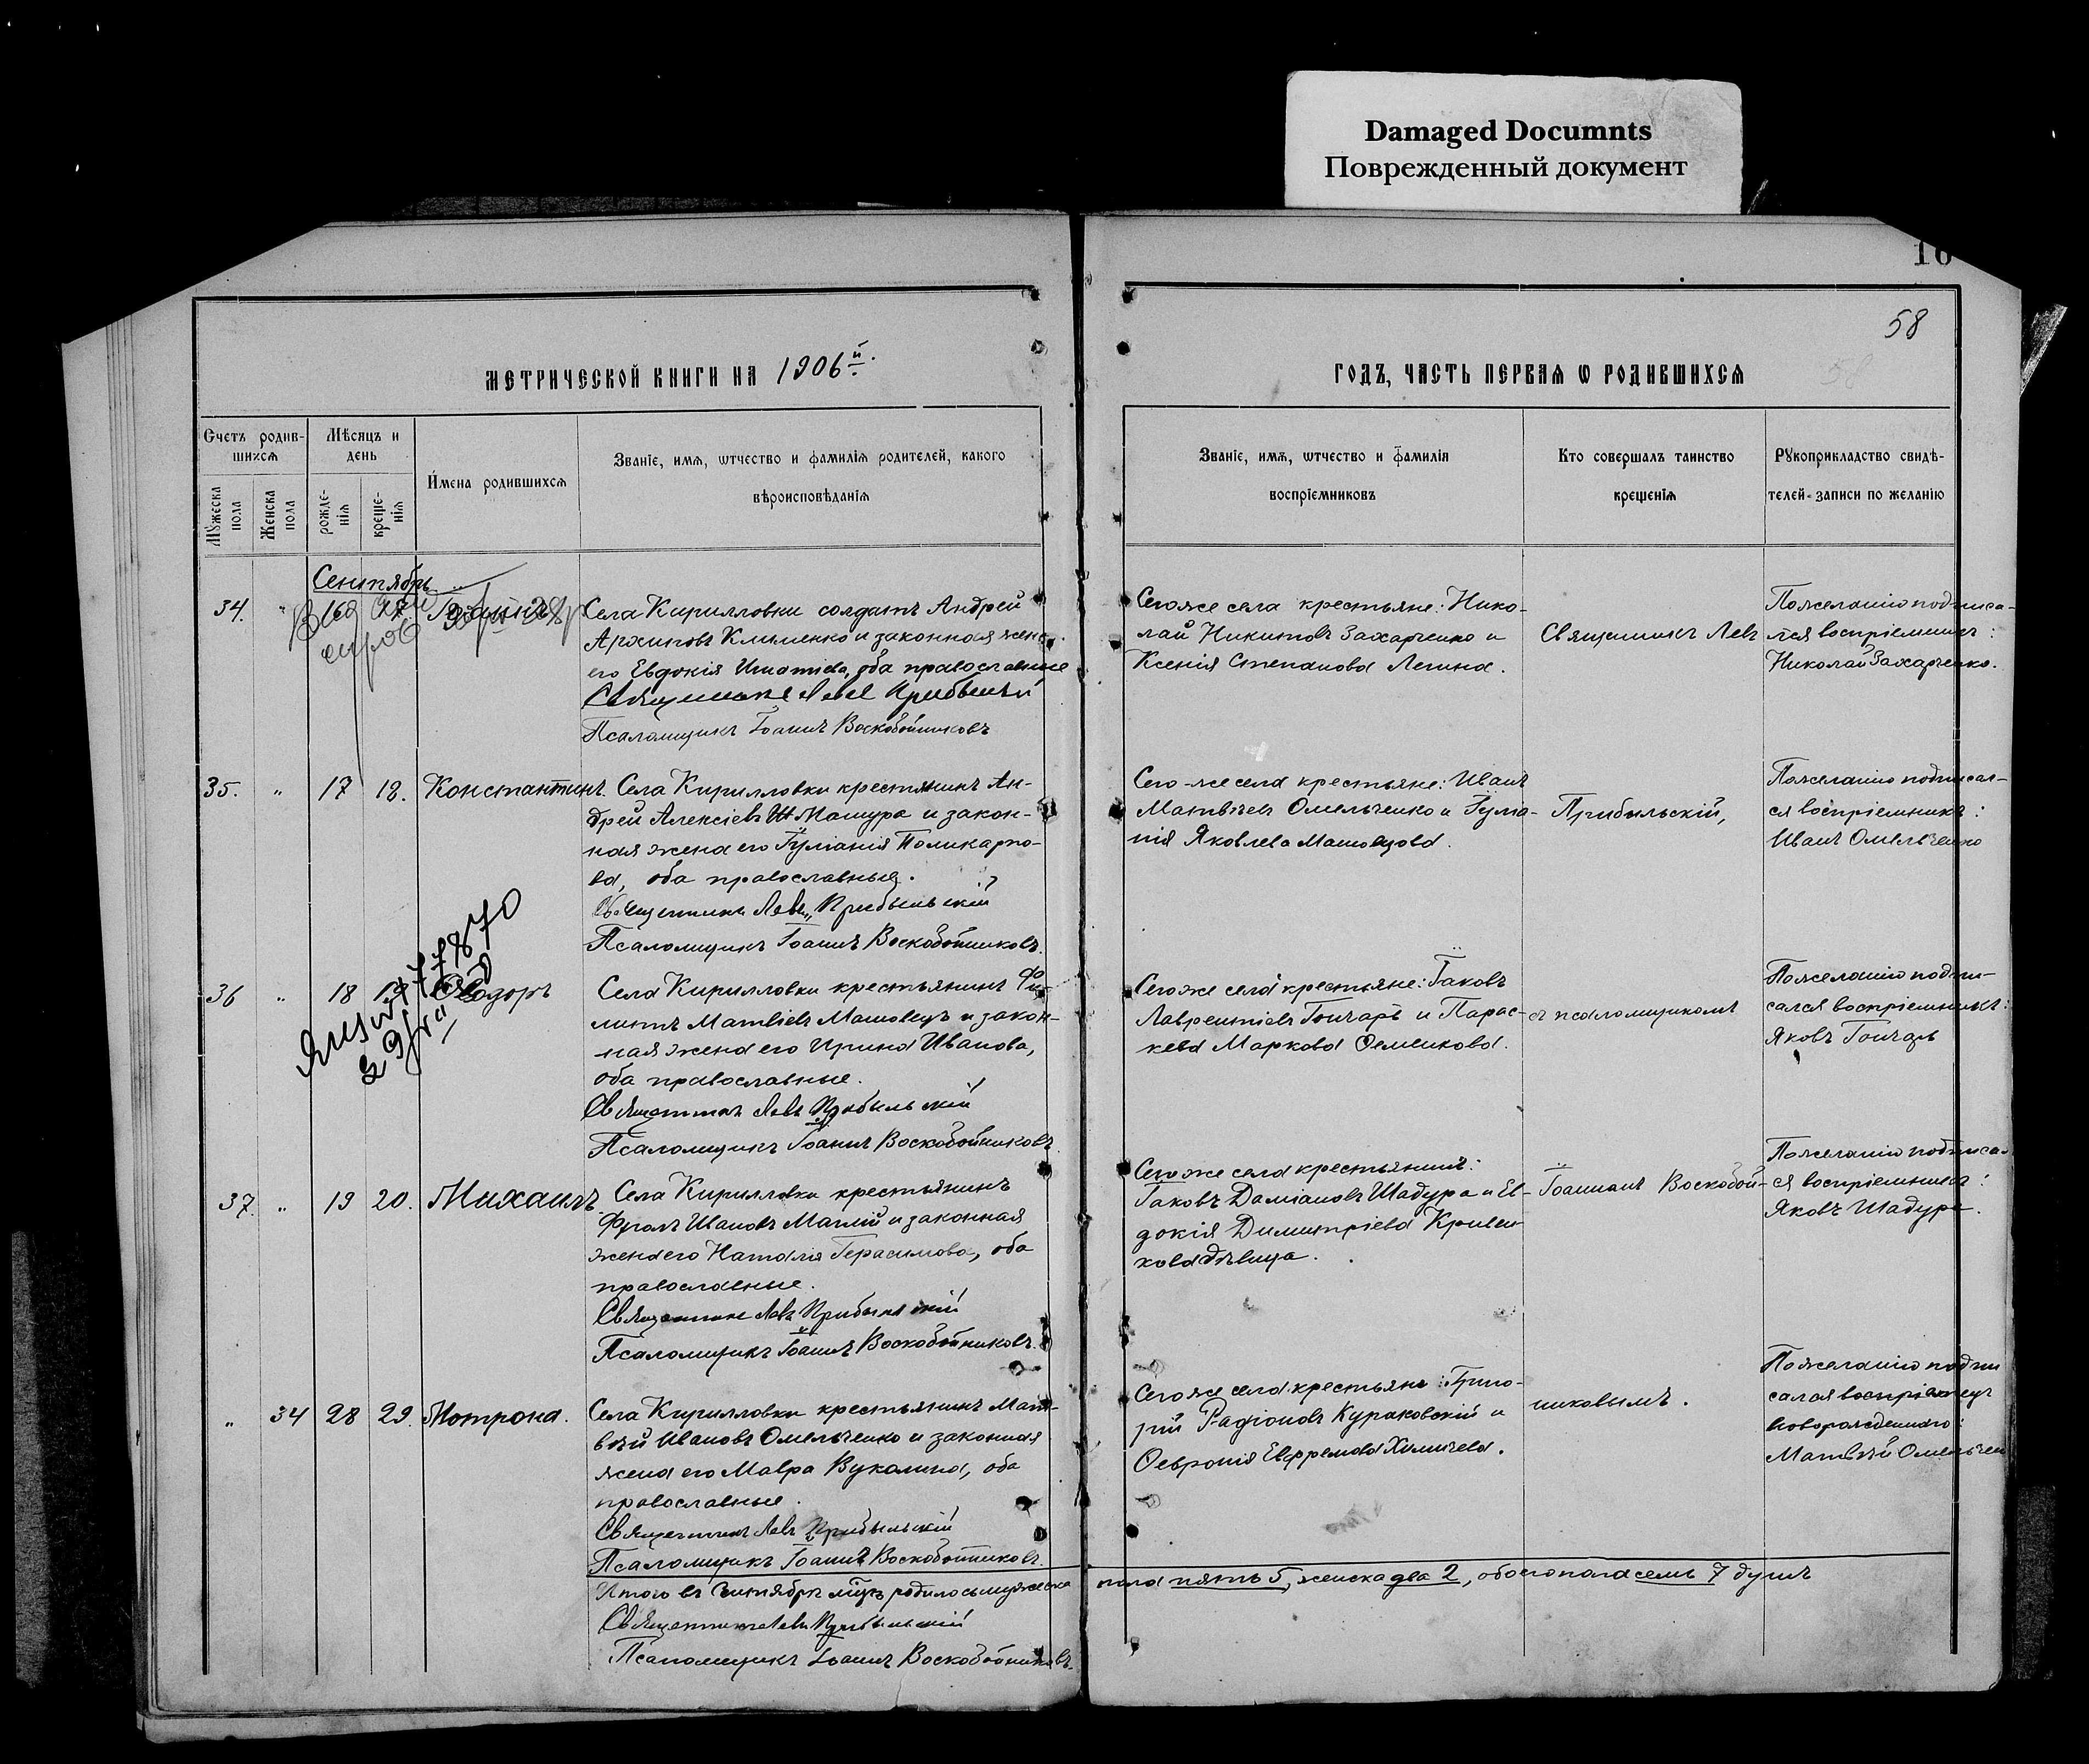 Damaged Documnts
Поврежденный документ
58
МЕТРИЧЕСКОЙ КНИГИ НА 1906й.
ГОДЪ, ЧАСТЬ ПЕРВАЯ Ѡ РОДИВШИХСЯ
Счетъ родив-
шихся
Мѣсяцъ и
день
Мужеска
пола
Женска
пола
рожде-
нія
креще-
нія
Имена родившихся
Званіе, имя, ѡтчество и фамилія родителей, какого
вѣроисповѣданія
Званіе, имя, ѡтчество и фамилія
воспріемниковъ
Кто совершалъ таинство
крещенія
Рукоприкладство свидѣ-
телей-записи по желанію
Сентябрь
34. " 16
Села Кирилловки солдатъ Андрей
Архиповъ Клименко и законная жена
его Евдокія Игнатова, оба православные
Священникъ Левъ Прибыльскій
Псаломщикъ Іоаннъ Воскобойниковъ
Сего же села крестьяне: Нико-
лай Никитовъ Захарченко и
Ксенія Степанова Легина.
Священникъ Левъ
По желанію подписа-
лся воспріемникъ:
Николай Захарченко.
35. " 17 18. Константинъ.
Села Кирилловки крестьянинъ Ан-
дрей Алексіевъ Мащура и закон-
ная жена его Іуліанія Поликарпо-
ва, оба православные.
Священникъ Левъ Прибыльскій
Псаломщикъ Іоаннъ Воскобойниковъ.
Сего-же села крестьяне: Иванъ
Матвѣевъ Омельченко и Іуліа-
нія Яковлева
Прибыльскій,
По желанію подписал-
ся воспріемникъ:
Иванъ Омельченко
36 " 18 19 Ѳеодоръ
77870
Села Кирилловки крестьянинъ Фи-
липпъ Матвіевъ и закон-
ная жена его Ирина Иванова,
оба православные.
Священникъ Левъ Прибыльскій
Псаломщикъ Іоаннъ Воскобойниковъ
Сего же села крестьяне: Іаковъ
Лаврентіевъ Гончаръ и Парас-
кева Маркова Семенкова.
съ псаломщикомъ
По желанію подпи-
сался воспріемникъ:
Яковъ Гончаръ
37. " 19 20. Михаилъ
Села Кирилловки крестьянинъ
Фролъ Ивановъ и законная
жена его Наталія Герасимова, оба
православные.
Священникъ Левъ Прибыльскій
Псаломщикъ Іоаннъ Воскобойниковъ.
Сего же села крестьянинъ:
Іаковъ Даміановъ Шадура и Ев-
докія Димитріева
дѣвица.
Іоанномъ Воскобой-
По желанію подписал-
ся воспріемникъ:
Яковъ Шадура.
" 34 28 29. Мотрона.
Села Кирилловки крестьянинъ Мат-
вѣй Ивановъ Омельченко и законная
жена его Мавра Вуколина, оба
православные.
Священникъ Левъ Прибыльскій
Псаломщикъ Іоаннъ Воскобойниковъ.
Сего же села крестьяне: Григо-
рій Радіоновъ Кураковскій и
Ѳевронія Евфремова Химичева.
никовымъ.
По желанію подпи
сался
новорожденнаго:
Матвѣй Омельчен
Итого въ Сентябрѣ мцѣ родилось мужеска пола пять 5, женска два 2, обоего пола семь 7 душъ
Священникъ Левъ Прибыльскій
Псаломщикъ Іоаннъ Воскобойниковъ.